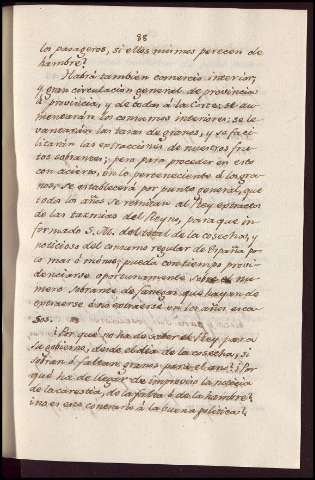 88
los pasageros, si ellos mismos perecen de
hambre?
Habrá tambien comercio interior,
y gran circulacion general de provincia
á provincia, y de todas á la Corte: se au-
mentarán los consumos interiores: se le-
vantarán las tasas de granos, y se faci-
litarán las extracciones de nuestros fru-
tos sobrantes; pero para proceder en esto
con acierto, en lo perteneciente á los gra-
nos, se establecerá por punto general, que
todo los años se remitan al Rey extractos
de las tazmias del Reyno, para que in-
formado S. M. del total de la cosecha, y
noticioso del consumo regular de España po-
co mas ó menos, pueda con tiempo provi-
denciarse oportunamente sobre el nu-
mero sobrante de fanegas que hayan de
extraerse ó no extraerse en los años esca-
sos.
¿Por qué no ha de saber el Rey para
su gobierno, desde el dia de la cosecha, si
sobran ó faltan granos para el año? ¿Por
qué ha de llegar de improviso la noticia
de la carestia, de la falta ó de la hambre?
¿no es esto contrario á la buena politica?